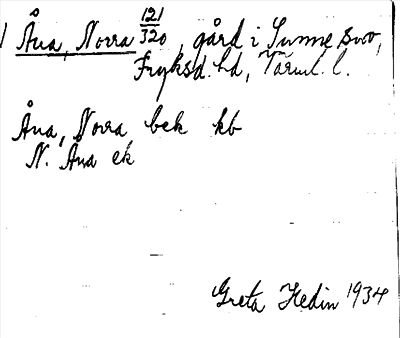 Åna, Norra 121/320, gård i Sunne svo,
Fryksd. hd, Värml. l.
Åna, Norra bek kb
N. Åna ek
Greta Hedin 1934